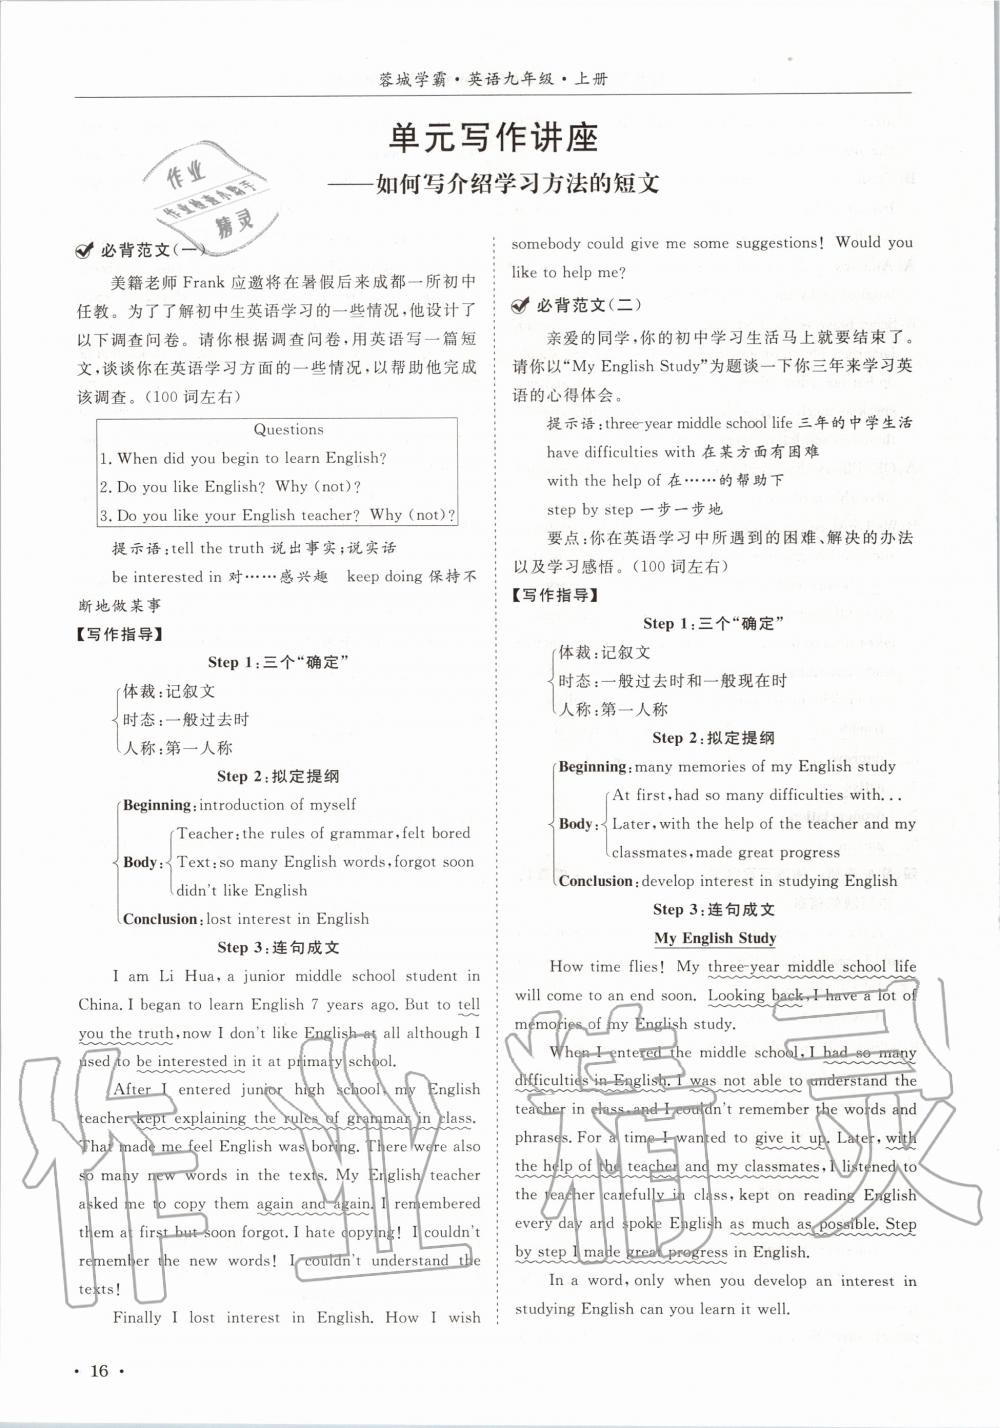 蓉城学霸·英语九年级·上册
单元写作讲座
——如何写介绍学习方法的短文
必背范文(一)
美籍老师 Frank 应邀将在暑假后来成都一所初中
任教。为了了解初中生英语学习的一些情况,他设计了
以下调查问卷。请你根据调查问卷,用英语写一篇短
文,谈谈你在英语学习方面的一些情况,以帮助他完成
该调查。(100 词左右)
Questions
1. When did you begin to learn English?
2. Do you like English? Why (not)?
3. Do you like your English teacher? Why (not)?
提示语:tell the truth 说出事实;说实话
be interested in 对……感兴趣 keep doing 保持不
断地做某事
【写作指导】
Step 1:三个“确定”
体裁:记叙文
时态:一般过去时
人称:第一人称
Step 2:拟定提纲
Beginning:introduction of myself
Teacher:the rules of grammar,felt bored
Body: Text:so many English words,forgot soon
didn't like English
Conclusion:lost interest in English
Step 3:连句成文
I am Li Hua,a junior middle school student in
China. I began to learn English 7 years ago. But to tell
you the truth,now I don't like English at all although I
used to be interested in it at primary school.
After I entered junior high school,my English
teacher kept explaining the rules of grammar in class.
That made me feel English was boring. There were also
so many new words in the texts. My English teacher
asked me to copy them again and again. I remembered
them at first but soon forgot. I hate copying! I couldn't
remember the new words! I couldn't understand the
texts!
Finally I lost interest in English. How I wish
somebody could give me some suggestions! Would you
like to help me?
必背范文(二)
亲爱的同学,你的初中学习生活马上就要结束了。
请你以“My English Study”为题谈一下你三年来学习英
语的心得体会。
提示语:three-year middle school life 三年的中学生活
have difficulties with 在某方面有困难
with the help of 在……的帮助下
step by step 一步一步地
要点:你在英语学习中所遇到的困难、解决的办法
以及学习感悟。(100 词左右)
【写作指导】
Step 1:三个“确定”
体裁:记叙文
时态:一般过去时和一般现在时
人称:第一人称
Step 2:拟定提纲
Beginning:many memories of my English study
At first,had so many difficulties with...
Body: Later,with the help of the teacher and my
classmates,made great progress
Conclusion:develop interest in studying English
Step 3:连句成文
My English Study
How time flies! My three-year middle school life
will come to an end soon. Looking back,I have a lot of
memories of my English study.
When I entered the middle school,I had so many
difficulties in English. I was not able to understand the
teacher in class,and I couldn't remember the words and
phrases. For a time I wanted to give it up. Later,with
the help of the teacher and my classmates,I listened to
the teacher carefully in class,kept on reading English
every day and spoke English as much as possible. Step
by step I made great progress in English.
In a word,only when you develop an interest in
studying English can you learn it well.
· 16 ·
作业
作业检查小助手
精灵
作业精灵